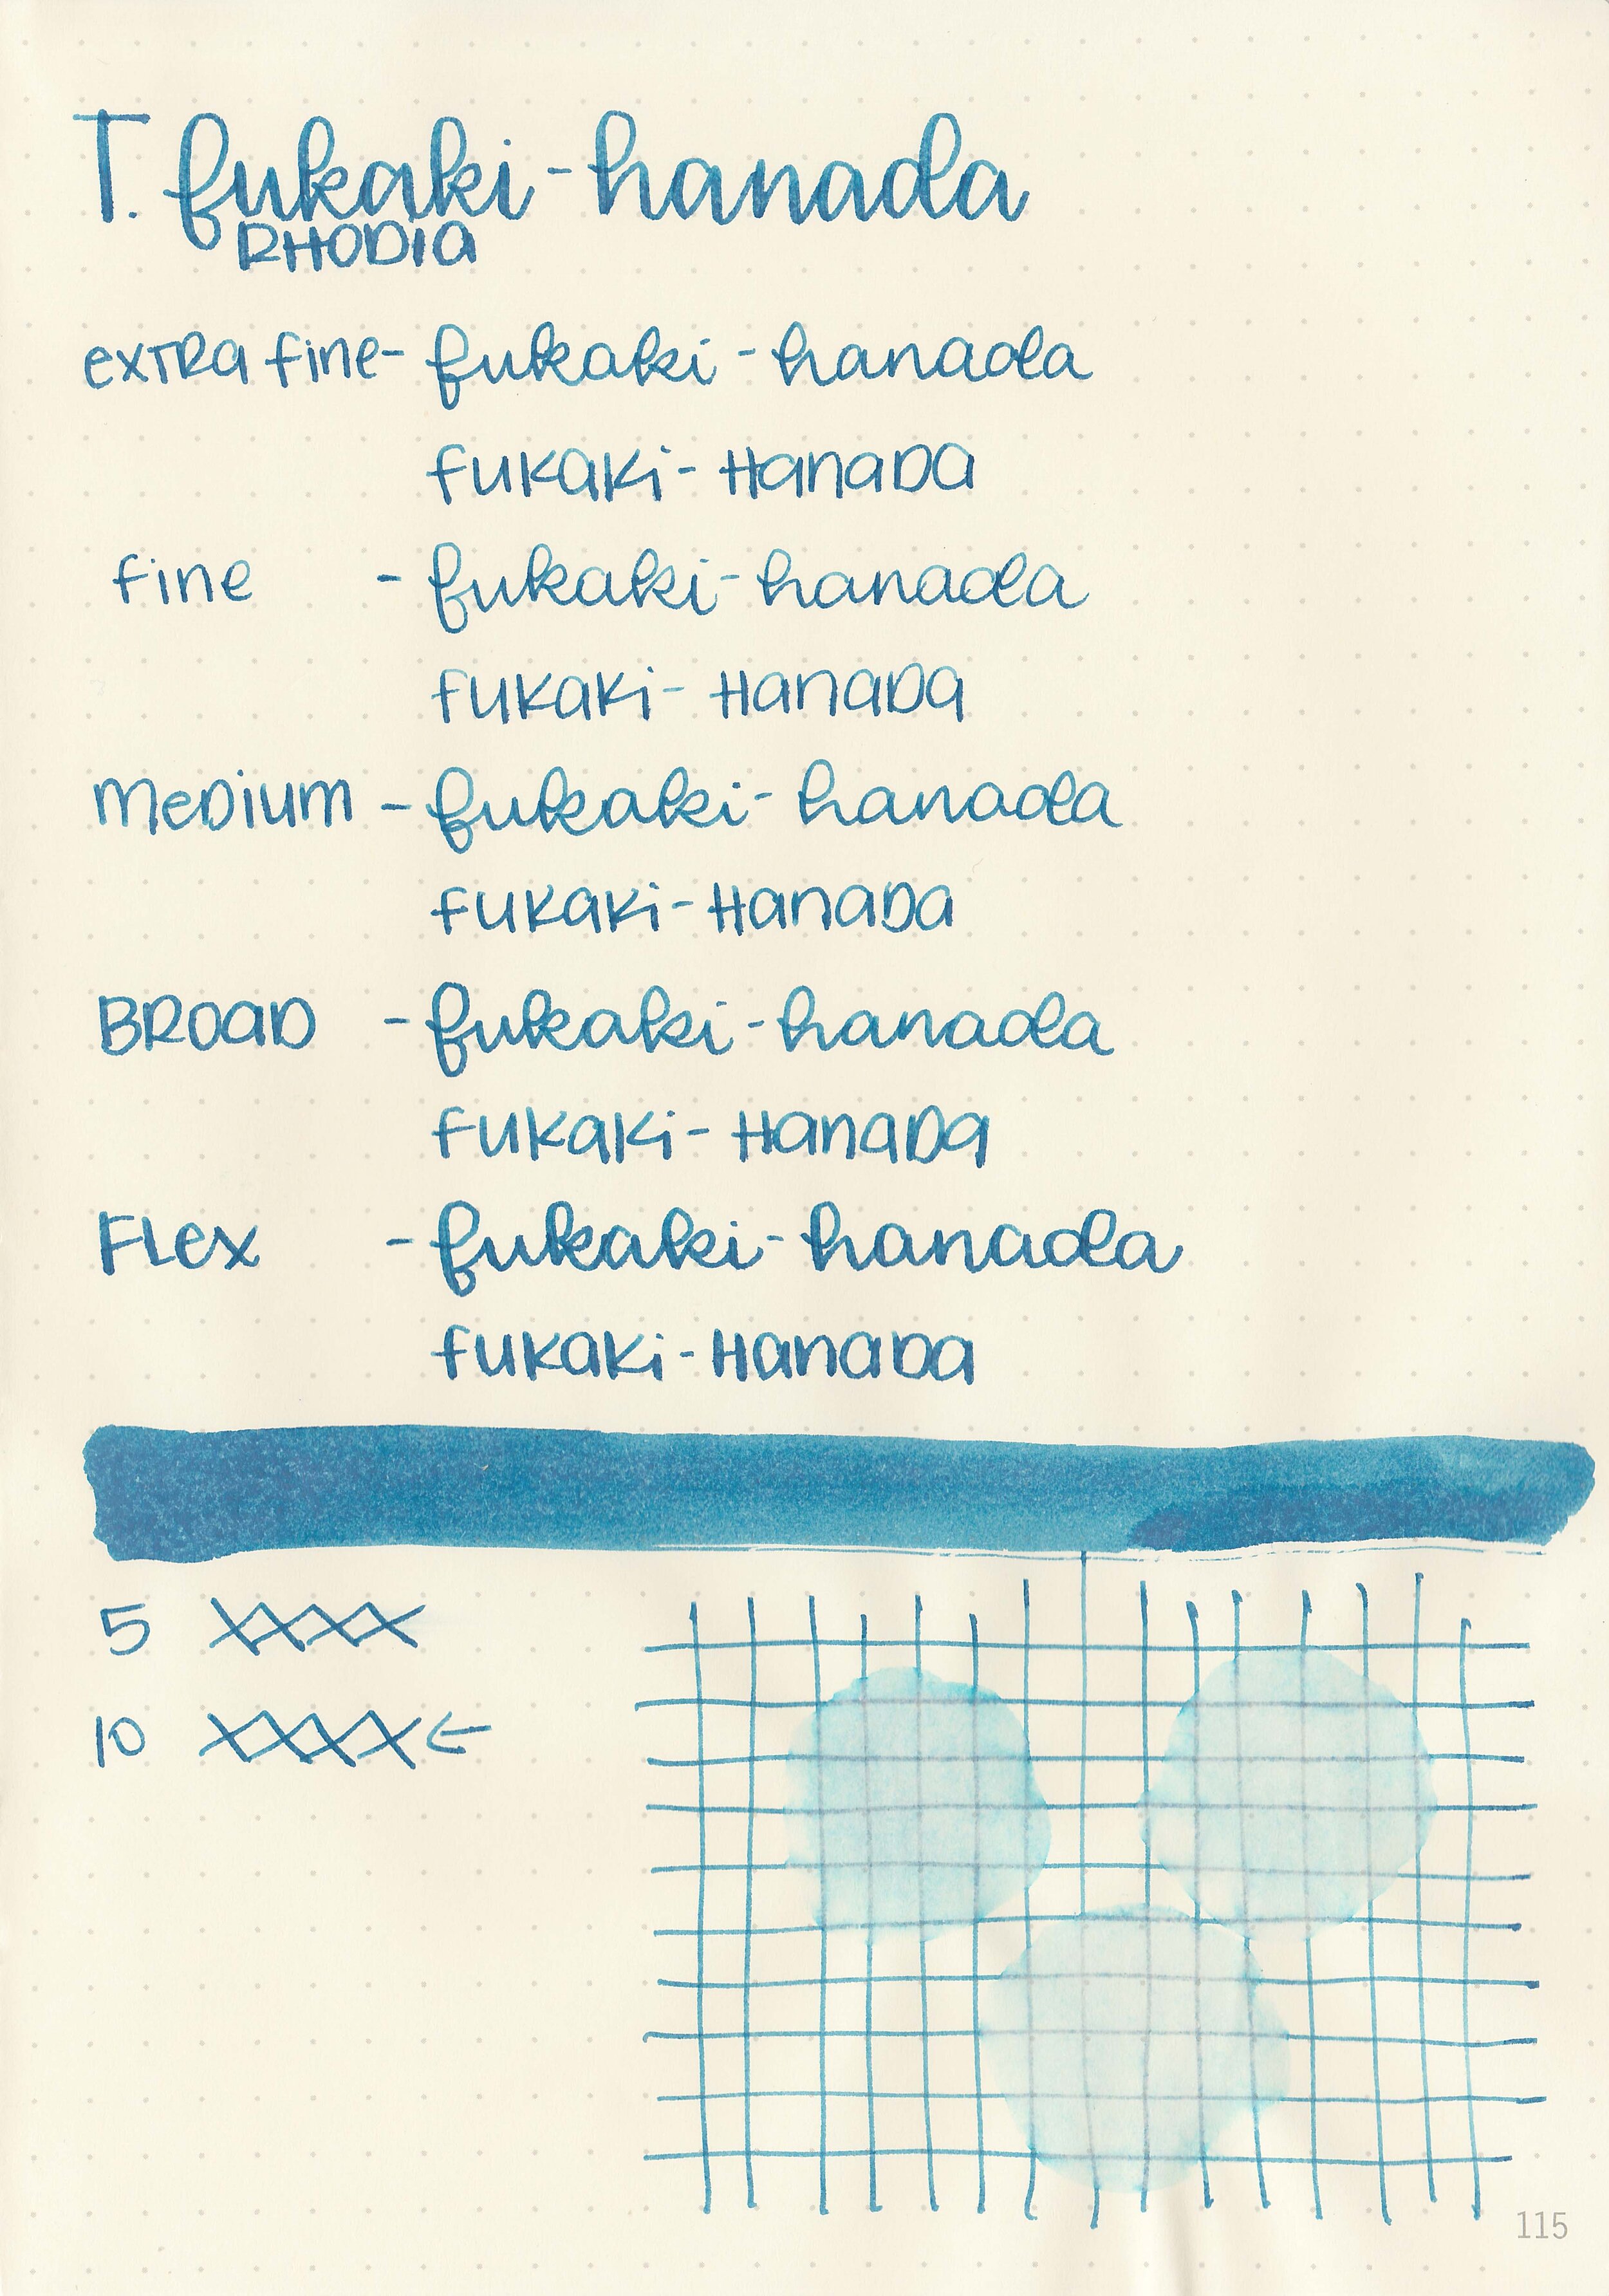 T. fukaki-hanada
RHODIA
exTRa fine- fukaki-hanada
fukaki-HanaDa
fine - fukaki-hanada
fukaki-HanaDa
MeDium - fukaki-hanada
fukaki-HanaDa
BRoaD - fukaki-hanada
fukaki-HanaDa
FLex - fukaki-hanada
fukaki-HanaDa
5 XXXX
10 XXXX←
115